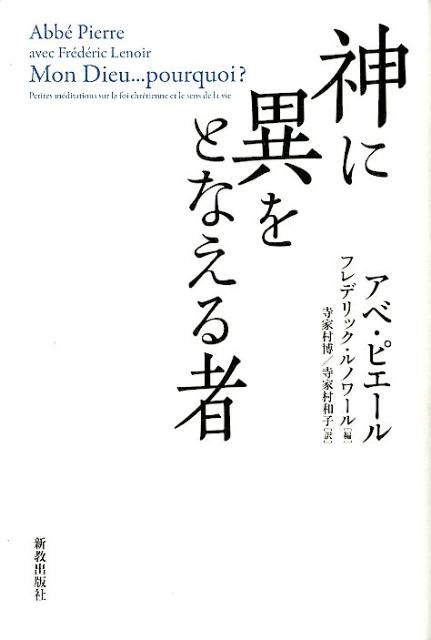 Abbé Pierre
avec Frédéric Lenoir
Mon Dieu...pourquoi?
Petites méditations sur la foi chrétienne et le sens de la vie
神に
異を
となえる者
アベ・ピエール
フレデリック・ルノワール[編]
寺家村博/寺家村和子[訳]
新教出版社